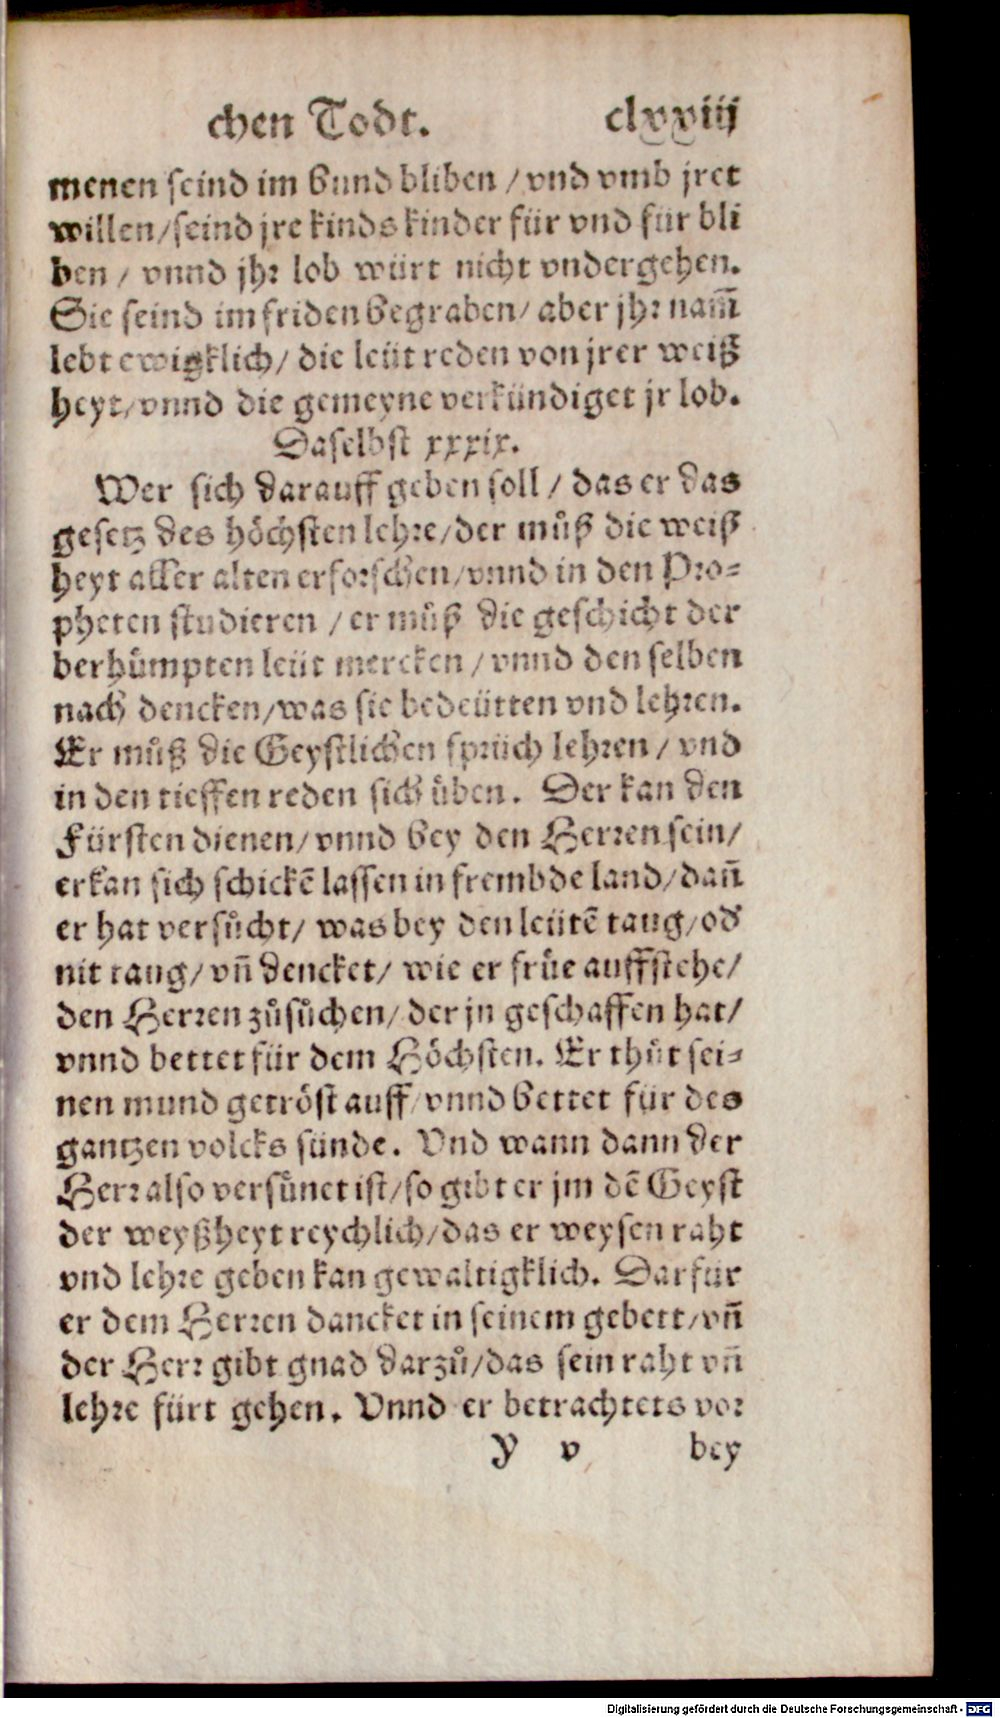 chen Todt. clxxiij
menen seind im bund bliben / vnd vmb jret
willen/seind jre kinds kinder für vnd für bli
ben / vnnd jhr lob würt nicht vndergehen.
Sie seind im friden begraben/ aber jhr nam̃
lebt ewigklich/ die leüt reden von jrer weiß
heyt/vnnd die gemeyne verkündiget jr lob.
Daselbst xxxix.
Wer sich darauff geben soll / das er das
gesetz des höchsten lehre/der můß die weiß
heyt aller alten erforschen/vnnd in den Pro⸗
pheten studieren / er můß die geschicht der
berhůmpten leüt mercken / vnnd den selben
nach dencken/was sie bedeütten vnd lehren.
Er můß die Geystlichen sprüch lehren / vnd
in den tieffen reden sich üben. Der kan den
Fürsten dienen/vnnd bey den Herren sein/
er kan sich schickẽ lassen in frembde land/dañ
er hat versůcht/ was bey den leütẽ taug/od
nit taug/vñ dencket/ wie er frůe auffstehe/
den Herren zůsůchen/der jn geschaffen hat/
vnnd bettet für dem Höchsten. Er thůt sei⸗
nen mund getröst auff/vnnd bettet für des
gantzen volcks sünde. Vnd wann dann der
Herr also versůnet ist/so gibt er jm dẽ Geyst
der weyßheyt reychlich/das er weysen raht
vnd lehre geben kan gewaltigklich. Darfür
er dem Herren dancket in seinem gebett/vñ
der Herr gibt gnad darzů/das sein raht vñ
lehre fürt gehen. Vnnd er betrachtets vor
Y v bey
Digitalisierung gefördert durch die Deutsche Forschungsgemeinschaft - DFG